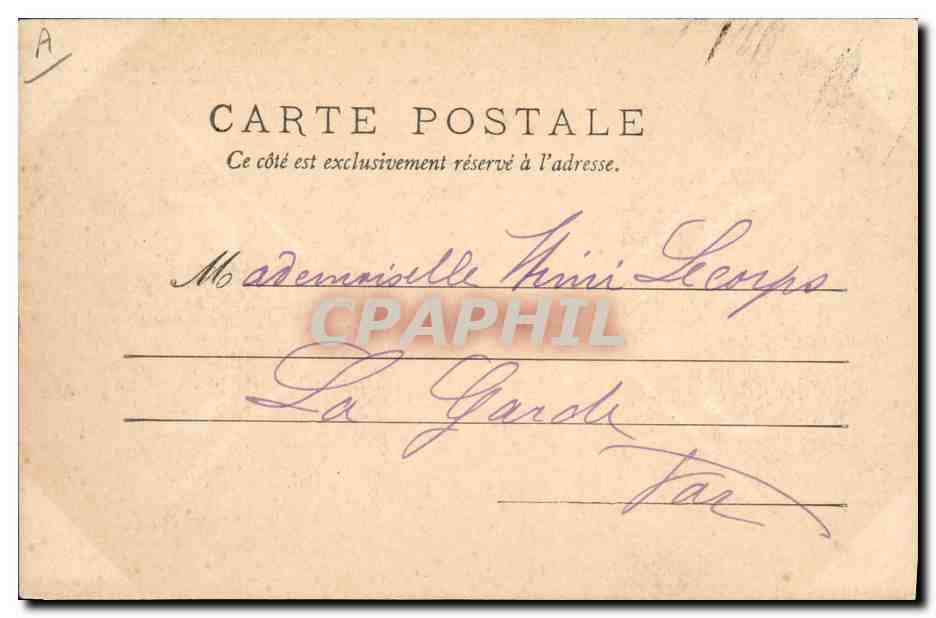 A
CARTE POSTALE
Ce côté est exclusivement réservé à l'adresse.
Mademoiselle Mimi Lecorps
CPAPHIL
La Garde
Var